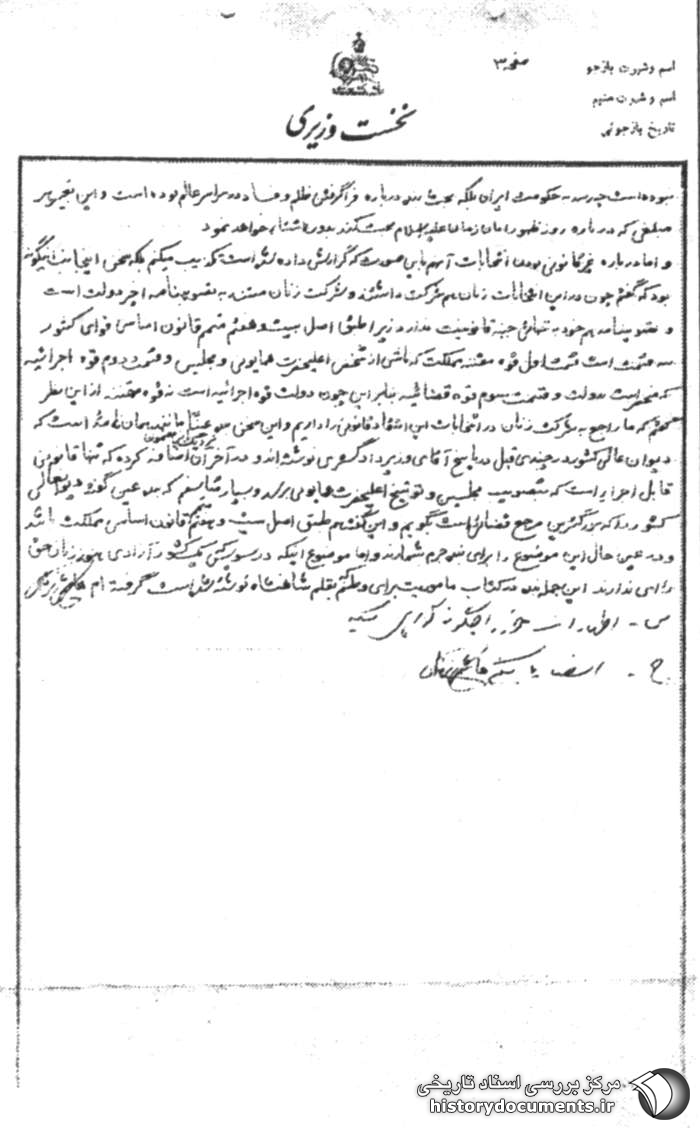 اسم و شهرت بازجو
صفحه ۳
اسم و شهرت متهم
تاریخ بازجوئی
نخست وزیری
نبوده است چه رسد به حکومت ایران بلکه بحث بنده درباره فراگرفتن ظلم و فساد در سراسر عالم بوده است و این تعبیر هر
مبلغی که درباره روز ظهور امام زمان علیه السلام صحبت کند بدون استثناء خواهد نمود
و اما درباره غیر قانونی بودن انتخابات آنهم باین صورت که گزارش داده شده است تکذیب میکنم بلکه سخن اینجانب اینگونه
بود که گفتم چون در این انتخابات زنان هم شرکت داشتند و شرکت زنان مستند به تصویبنامه اخیر دولت است
و تصویبنامه هم خود به تنهائی جنبه قانونیت ندارد زیرا طبق اصل بیست و هفتم متمم قانون اساسی قوای کشور
سه قسمت است قسمت اول قوه مقننه مملکت که ناشی از شخص اعلیحضرت همایونی و مجلسین و قسمت دوم قوه اجرائیه
که منحصر است بدولت و قسمت سوم قوه قضائیه بنابراین چون دولت قوه اجرائیه است نه قوه مقننه از این نظر
گفتم که ما راجع به شرکت زنان در انتخابات این انتقاد قانونی را داریم و این سخن بنده عیناً مانند همان نامه است که
دیوان عالی کشور در چندی قبل در پاسخ آقای وزیر دادگستری نوشته‌اند و در آخر آن اضافه کرده که تنها قانونی
قابل اجرا است که بتصویب مجلسین و توشیح اعلیحضرت همایونی برسد و بسیار متأسفم که بنده عین گفته دیوانعالی
کشور را که بزرگترین مرجع قضائی است بگویم و این گفته هم طبق اصل بیست و هفتم متمم قانون اساسی مملکت باشد
و در عین حال این موضوع را برای بنده جرم شمارند و اما موضوع اینکه در سویس یک کشور آزادی هنوز زنان حق
رأی ندارند این جمله بنده از کتاب ماموریت برای وطنم بقلم شاهنشاه نوشته شده است گرفته ام
س - اظهارات خود را چگونه گواهی میکنید
ج - امضاء میکنم
مرکز بررسی اسناد تاریخی
historydocuments.ir